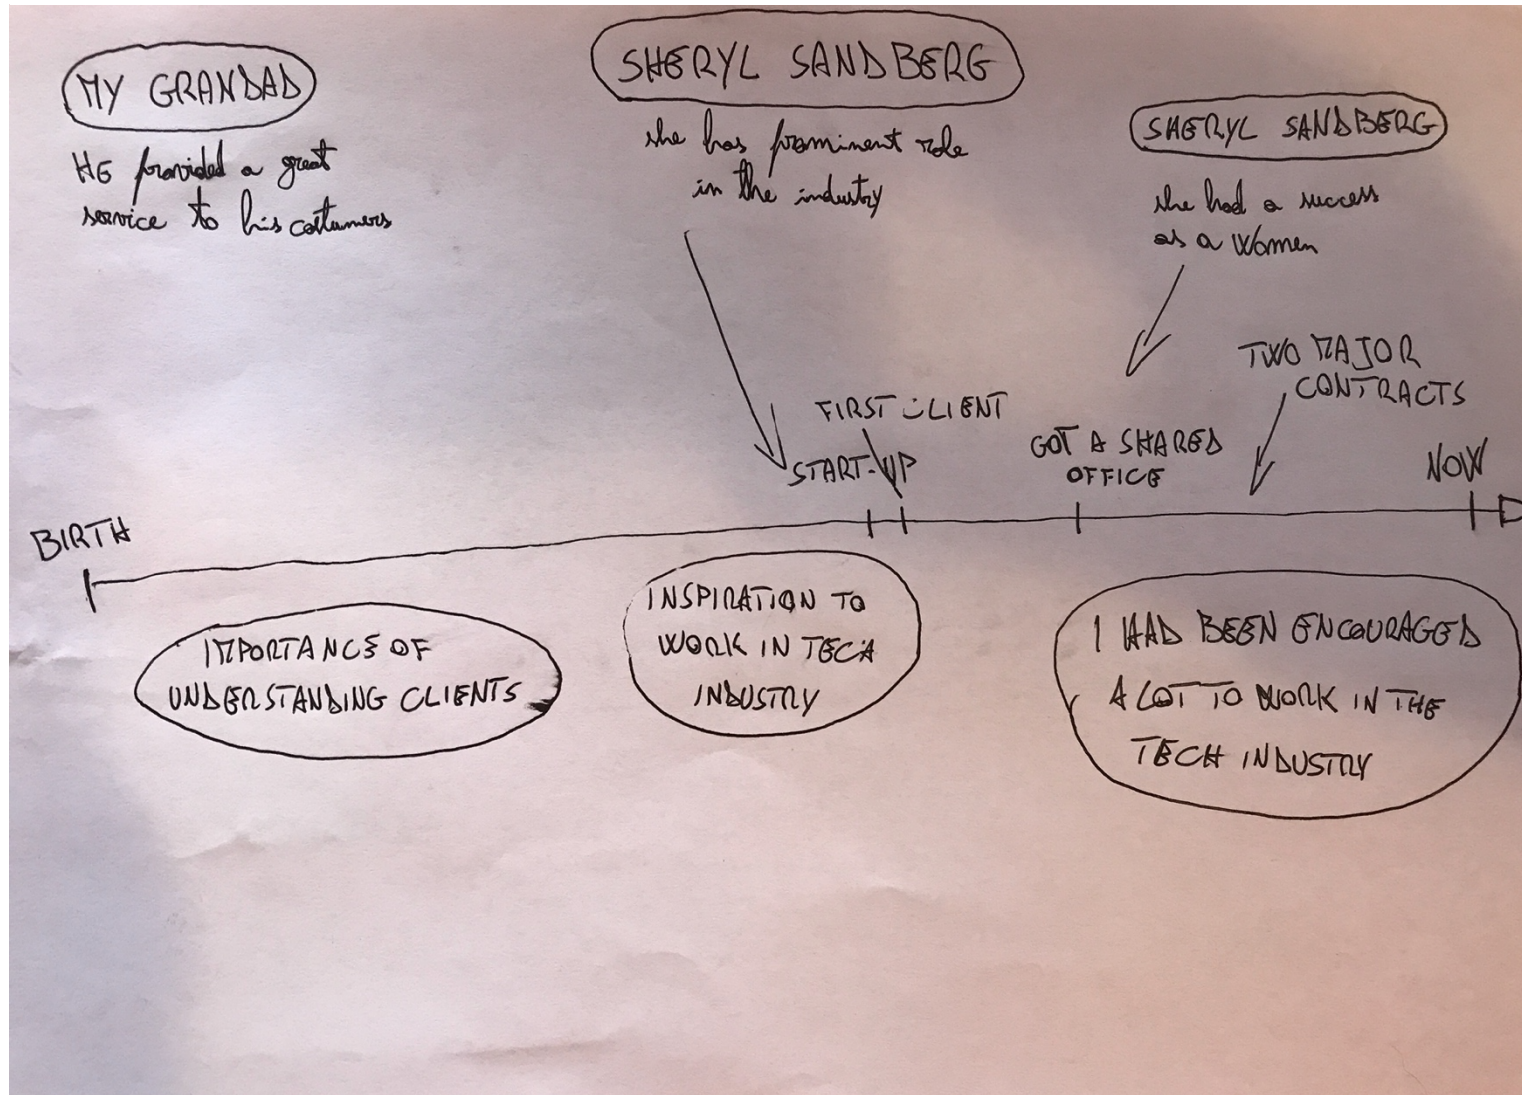 MY GRANDAD
HE provided a great
service to his costumers
SHERYL SANDBERG
she has prominent role
in the industry
SHERYL SANDBERG
she had a success
as a women
TWO MAJOR
CONTRACTS
FIRST CLIENT
START-UP
GOT A SHARED
OFFICE
NOW
BIRTH
IMPORTANCE OF
UNDERSTANDING CLIENTS
INSPIRATION TO
WORK IN TECH
INDUSTRY
I HAD BEEN ENCOURAGED
A LOT TO WORK IN THE
TECH INDUSTRY